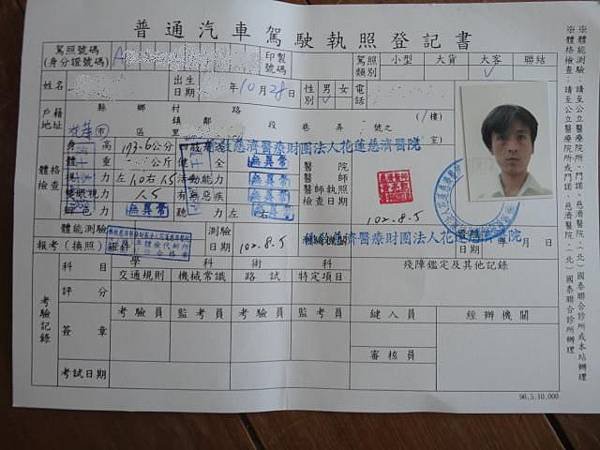 普通汽車駕駛執照登記書
駕照號碼
(身分證號碼)
A
印製
號碼
駕照
類別
小型 大貨 大客 聯結
姓名
出生
日期
年10月28日
性別 男 女
電話
戶籍
地址
縣 鄉 村 路
市 區 里 鄰 段 巷 弄 號之 (樓)
室)
體格
檢查
身高 173.6公分
體重 公斤
視力 左1.0右1.5
兩眼視力 1.5
辨色力 無異常
四肢
健全 無異常
活動能力 無異常
有無惡疾 無異常
聽力 左 右
慈濟醫療財團法人花蓮慈濟醫院
醫院
醫師
醫師執照
檢查日期
102.8.5
體能測驗
測驗
日期
102.8.5
慈濟醫療財團法人花蓮慈濟醫院
年 月 日
報考(換照)
考驗記錄
科目
學科 術科
交通規則 機械常識 路試 特定項目
殘障鑑定及其他記錄
評分
簽章
考驗員 監考員 考驗員 監考員
鍵入員 經辦機關
審核員
考試日期
98.5.10,000
※體能測驗:請至公立醫院或門諾、慈濟醫院、(北)國泰聯合診所或本站辦理
※體格檢查:請至公立醫療院所或門諾、慈濟醫院、(北)國泰聯合診所辦理